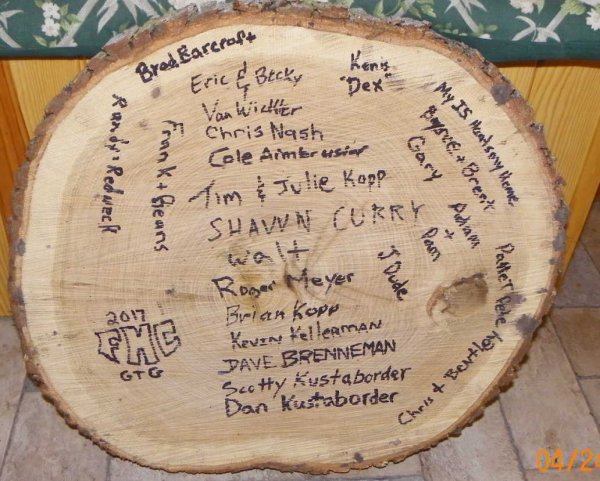 Brad Barcraft
Eric & Becky
&
Van Wickler
Chris Nash
Cole Armbruster
Tim & Julie Kopp
SHAWN CURRY
Walt
Roger Meyer
Brian Kopp
Kevin Kellerman
DAVE BRENNEMAN
Scotty Kustaborder
Dan Kustaborder
Randy: Redneck
Frank + Beans
2017
AHC
GTG
Keny
"Dex"
My IS
+ Brent
Gary
+
Pam
J Dude
Pete
Chris + Bentley
04/20